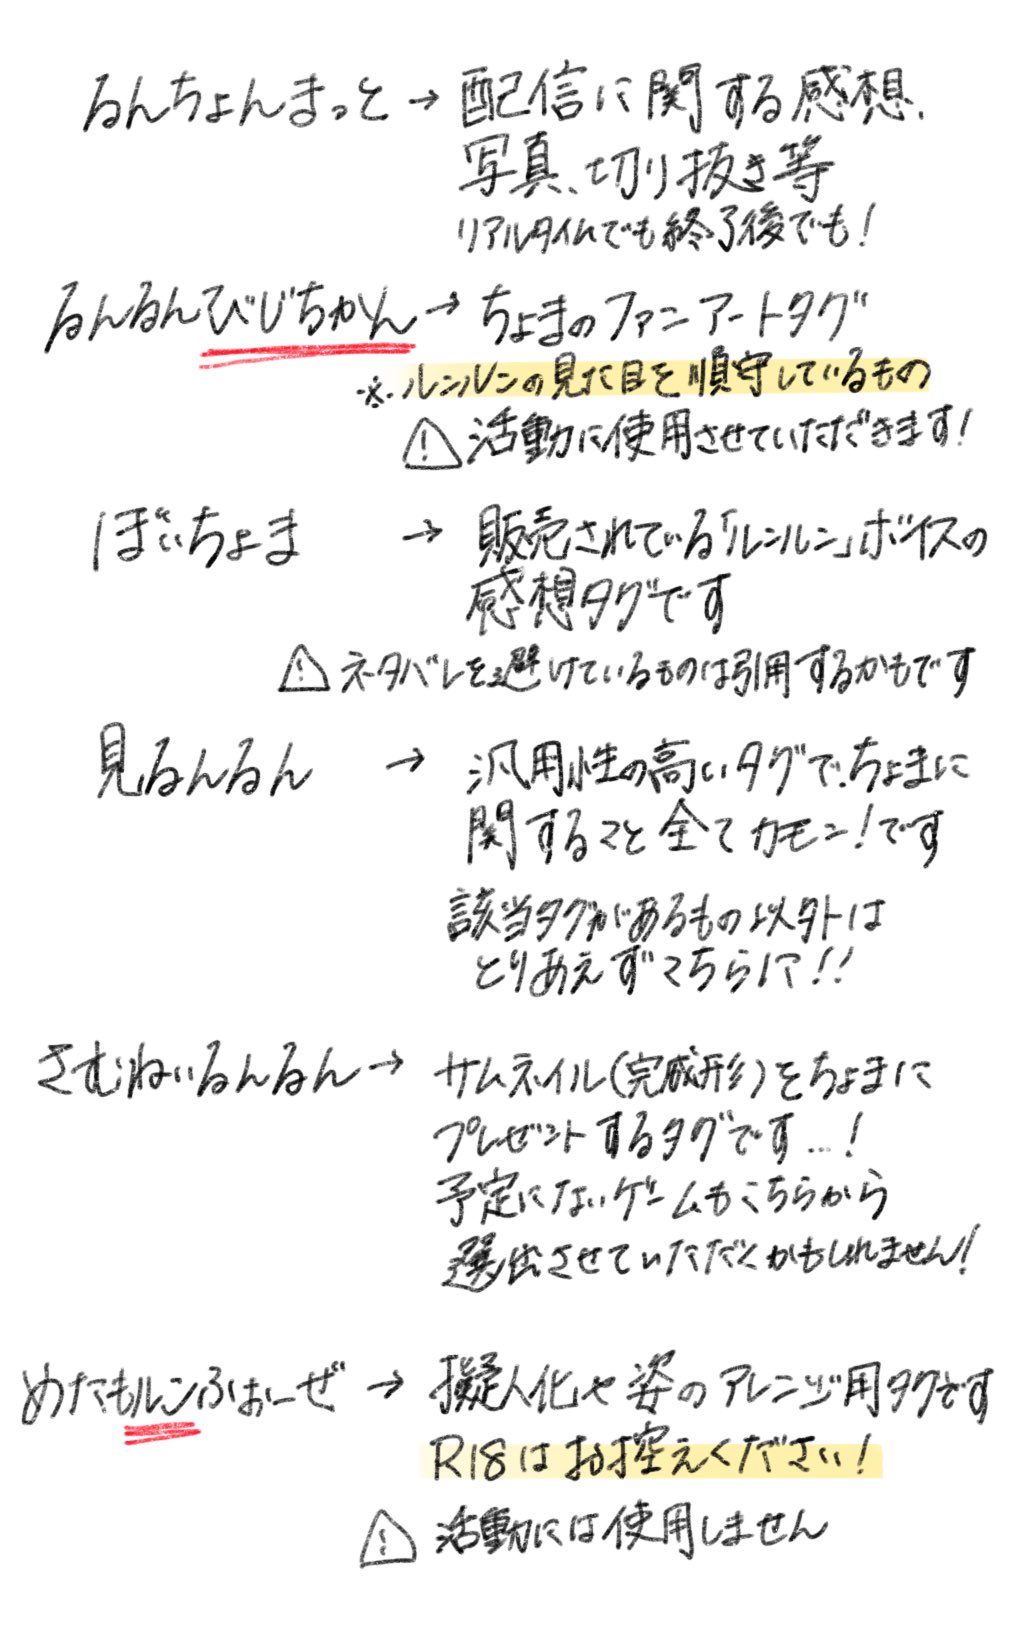 るんちょんまっと→配信に関する感想、
写真、切り抜き等
リアルタイムでも終了後でも!
るんるんびじちゃん→ちょまのファンアートタグ
※ルンルンの見た目を順守しているもの
⚠活動に使用させていただきます!
ぼいちょま→販売されている「ルンルン」ボイスの
感想タグです
⚠ネタバレを避けているものは引用するかもです
見るんるん→汎用性の高いタグで、ちょまに
関すること全てカモン!です
該当タグがあるもの以外は
とりあえずこちらに!!
さむねいるんるん→サムネイル(完成形)をちょまに
プレゼントするタグです...!
予定にないゲームもこちらから
選出させていただくかもしれません!
めたもルンふぉーぜ→擬人化や姿のアレンジ用タグです
R18はお控えください!
⚠活動には使用しません